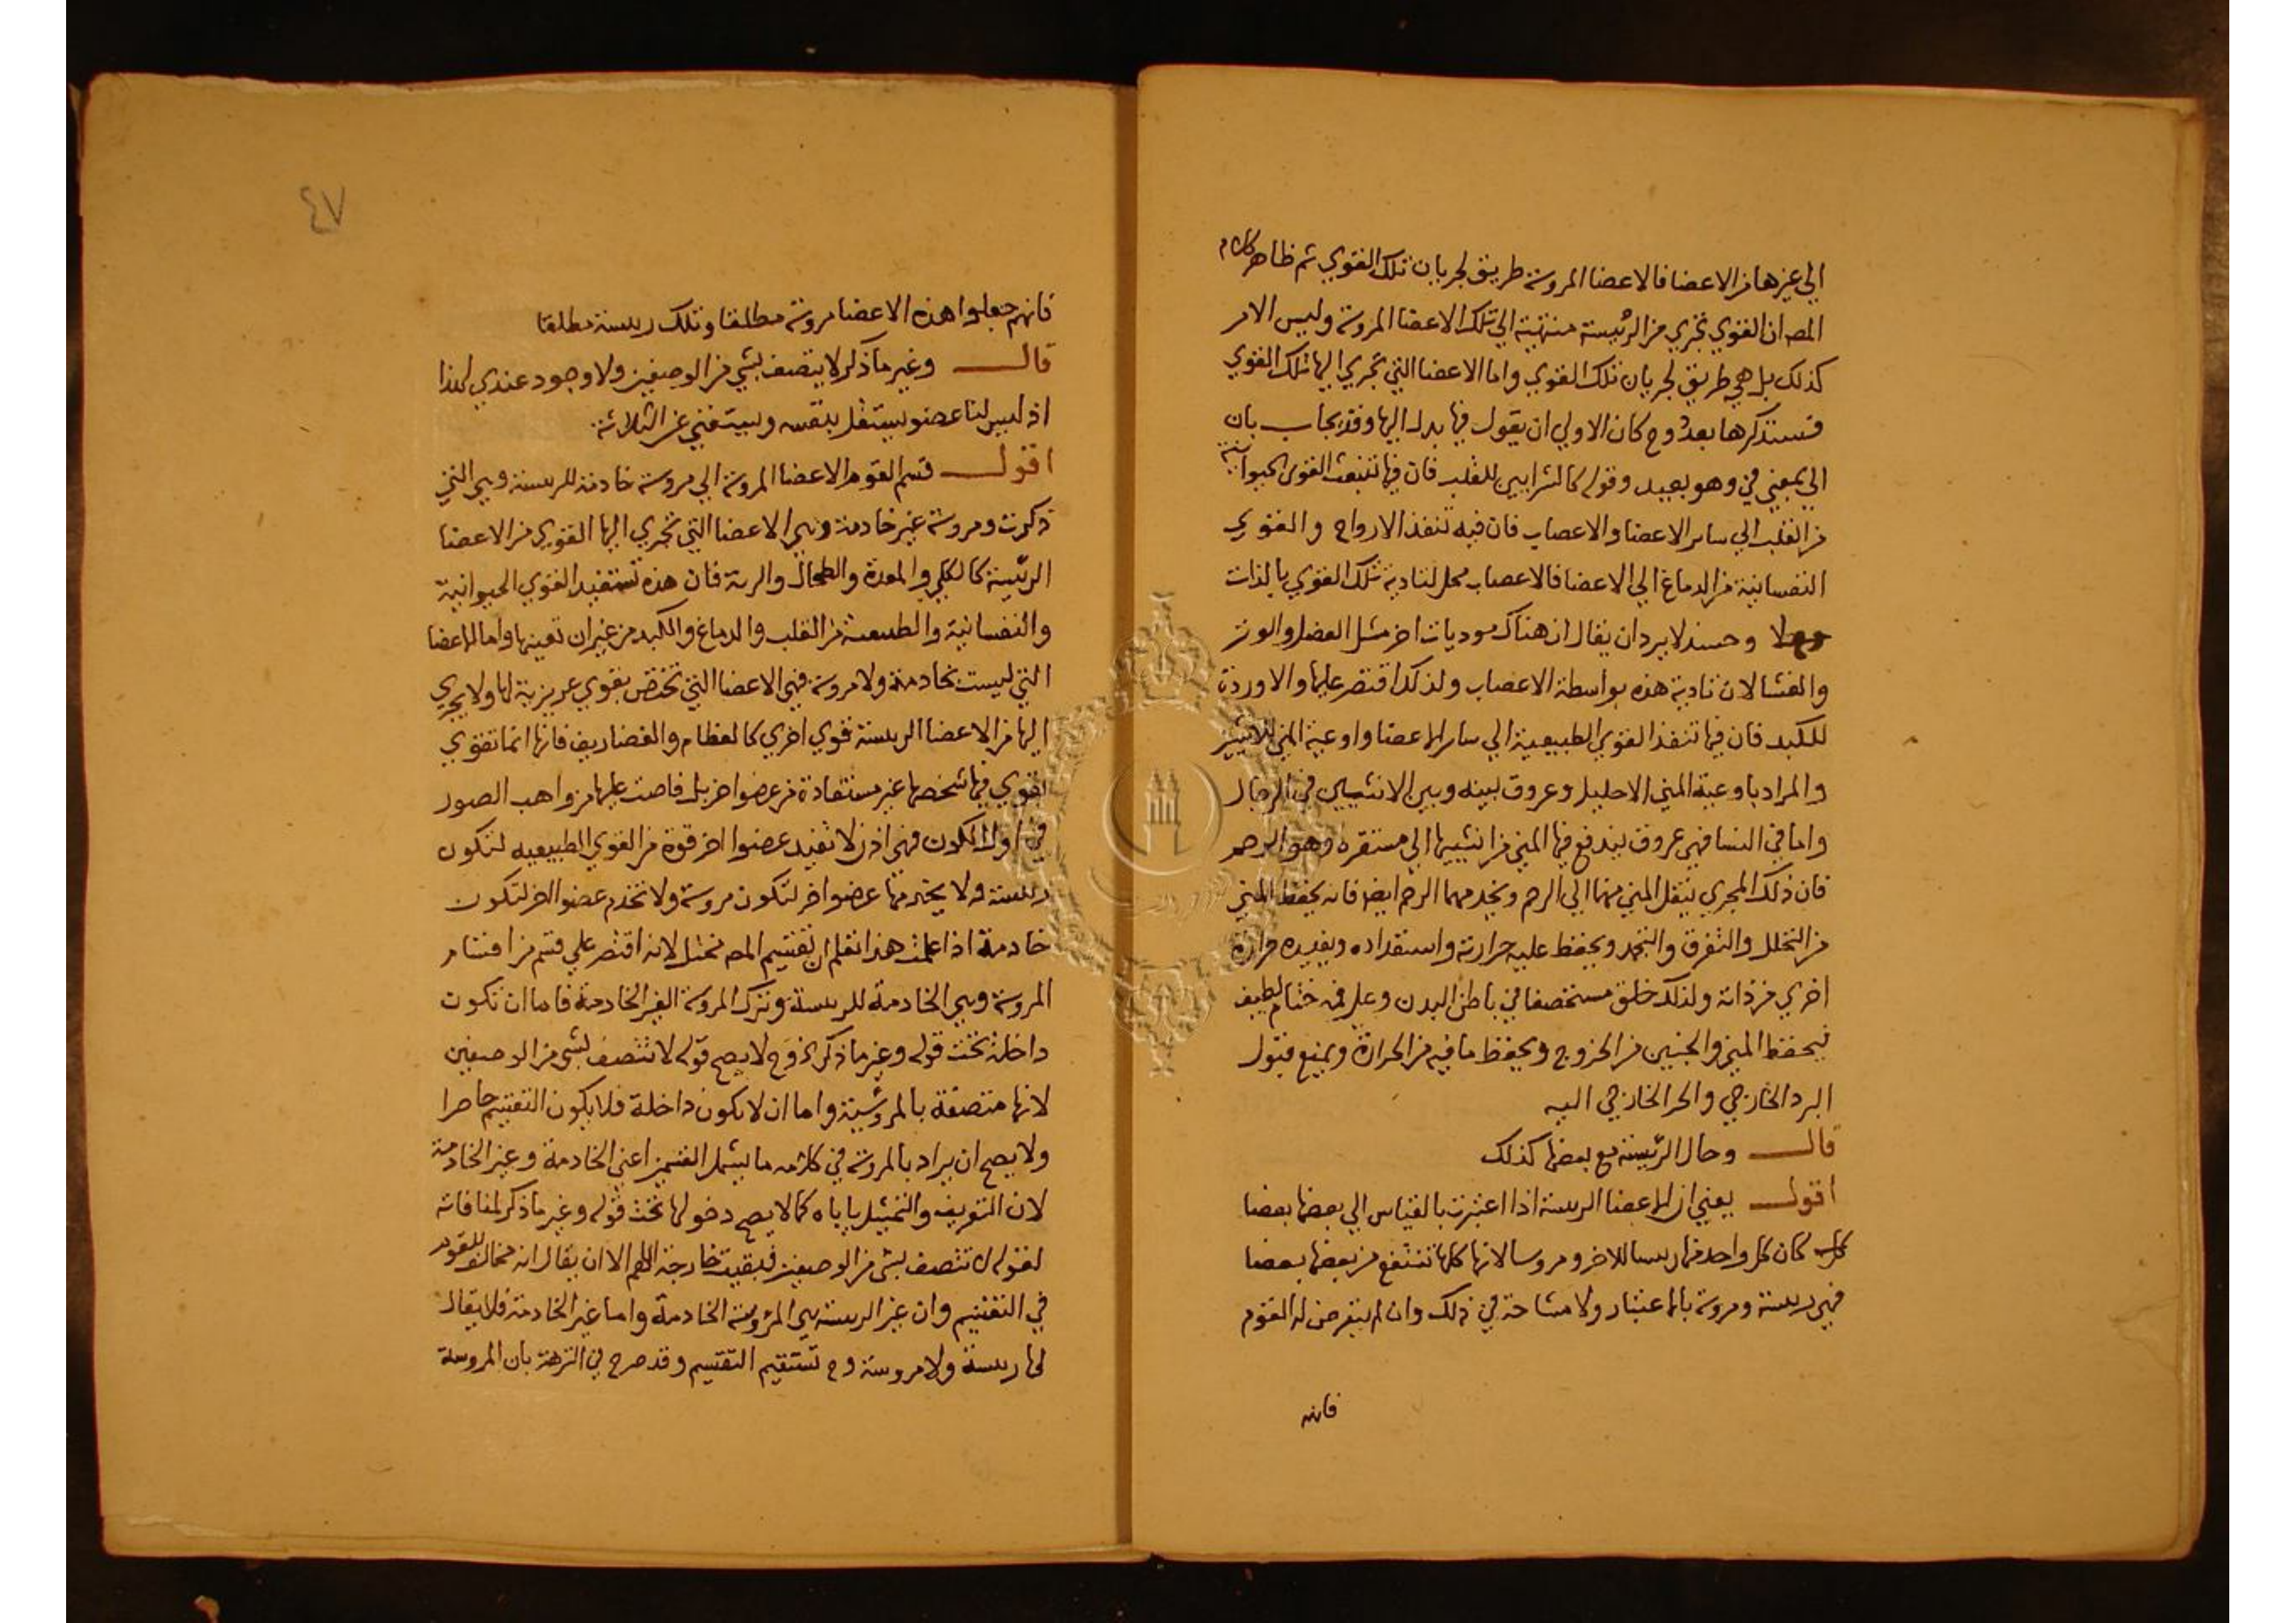 الي غيرها من الاعضا فالاعضا المروسة طريق لجريان تلك القوي ثم ظاهر كلام
المص ان القوي تجري من الرئيسة منتهية الي تلك الاعضا المروسة وليس الامر
كذلك بل هي طريق لجريان تلك القوي واما الاعضا التي تجري اليها تلك القوي
فستذكرها بعد وح كان الاولي ان يقول فيها بدل اليها وقد يجاب بان
الي بمعني في وهو بعيد وقوله كالشرايين للقلب فان فيها تنبعث القوي الحيوانية
من القلب الي ساير الاعضا والاعصاب فان فيه تنفذ الارواح والقوي
النفسانية من الدماغ الي الاعضا فالاعصاب محل لتادية تلك القوي بالذات
وحسند لا يرد ان يقال ان هناك موديات اخر مثل العضل والوتر
والغشا لان تادية هذه بواسطة الاعصاب ولذلك اقتصر عليها والاوردة
للكبد فان فيها تنفذ القوي الطبيعية الي ساير الاعضا واوعية المني للانثيين
والمراد باوعية المني الاحليل وعروق بينه وبين الانثيين في الرجال
واما في النسا فهي عروق يندفع فيها المني من انثييها الي مستقره وهو الرحم
فان ذلك المجري ينقل المني منها الي الرحم ويخدمهما الرحم ايضا فانه يحفظ المني
من التخلل والتفرق والتجمد ويحفظ عليه حرارته واستعداده ويفيده حرارة
اخري من ذاته ولذلك خلق مستخصفا في باطن البدن وعلي فمه ختام لطيف
فيحفظ المني والجنين من الخروج ويحفظ ما فيه من الحرارة ويمنع قبول
البرد الخارجي والحر الخارجي اليه
قال وحال الرئيسة مع بعضها كذلك
اقول يعني ان الاعضا الريسة اذا اعتبرت بالقياس الي بعضها بعضا
كان كل واحد منها ريسا للاخر ومروسا لانها كلها تنتفع من بعضها بعضا
فهي ريسة ومروسة بالاعتبار ولا مشاحة في ذلك وان لم يتعرض له القوم
فانه
٤٧
فانهم جعلوا هذه الاعضا مروسة مطلقا وتلك ريسة مطلقا
قال وغير ما ذكر لا يتصف بشي من الوصفين ولا وجود عندي لهذا
اذ ليس لنا عضو يستقل بنفسه ويستغني عن الثلاثة
اقول قسم القوم الاعضا المروسة الي مروسة خادمة للريسة وهي التي
ذكرت ومروسة غير خادمة وهي الاعضا التي تجري اليها القوي من الاعضا
الرئيسة كالكلي والمعدة والطحال والرية فان هذه تستفيد القوي الحيوانية
والنفسانية والطبيعية من القلب والدماغ والكبد من غير ان تعينها واما الاعضا
التي ليست بخادمة ولا مروسة فهي الاعضا التي تختص بقوي عريزية لها ولا يجري
اليها من الاعضا الريسة قوي اخري كالعظام والغضاريف فانها انما تقوي
بقوي فيها تخصها غير مستفادة من عضو اخر بل فاضت عليها من واهب الصور
في اول الكون فهي اذن لا تفيد عضوا اخر قوة من القوي الطبيعيه لتكون
ريسة ولا يخدمها عضو اخر لتكون مروسة ولا تخدم عضوا اخر لتكون
خادمة اذا علمت هذا تعلم ان تقسيم المص مختل لانه اقتصر علي قسم من اقسام
المروسة وهي الخادمة للريسة وترك المروسة الغير الخادمة فاما ان تكون
داخلة تحت قوله وغير ما ذكر وح لا يصح قوله لا تتصف بشي من الوصفين
لانها متصفة بالمروسية واما ان لا يكون داخلة فلا يكون التقسيم حاصرا
ولا يصح ان يراد بالمروسة في كلامه ما يشمل القسمين اعني الخادمة وغير الخادمة
لان التعريف والتمثيل ياباه كما لا يصح دخولها تحت قوله وغير ما ذكر لمنافاته
لقوله لا تتصف بشي من الوصفين فبقيت خارجة اللهم الا ان يقال انه مخالف للقوم
في التقسيم وان غير الريسة هي المروسة الخادمة واما غير الخادمة فلا يقال
لها ريسة ولا مروسة وح تستقيم التقسيم وقد صرح في النزهة بان المروسة